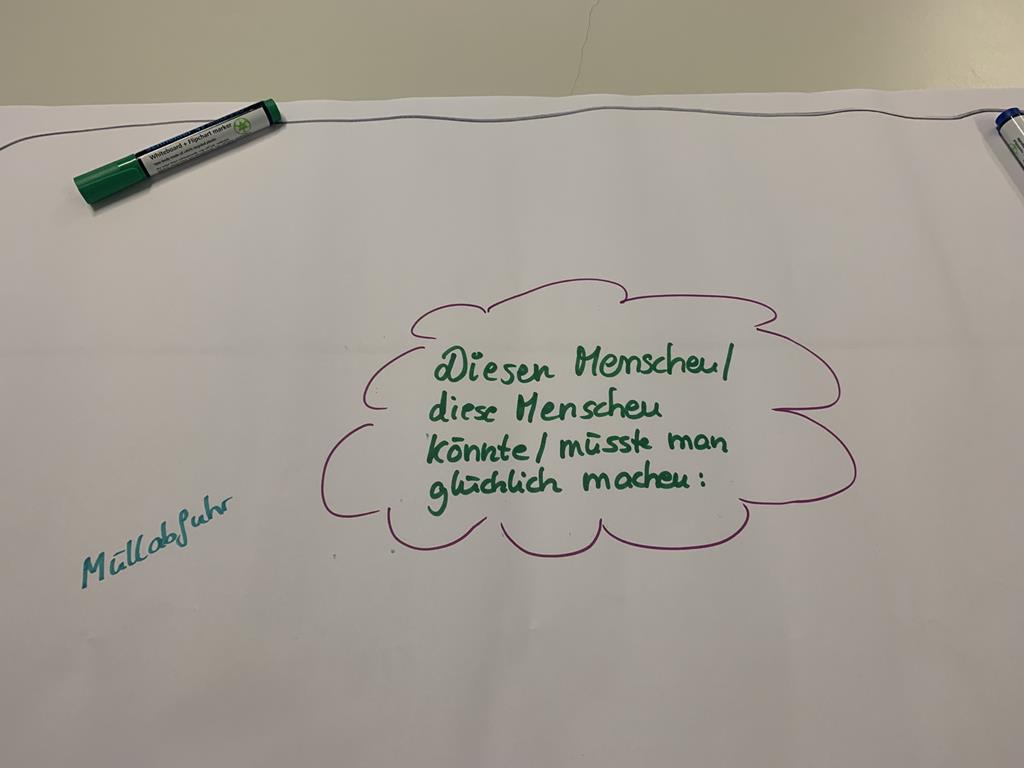 Whiteboard + Flipchart marker
Diesen Menschen/
diese Menschen
könnte/müsste man
glücklich machen:
Müllabfuhr